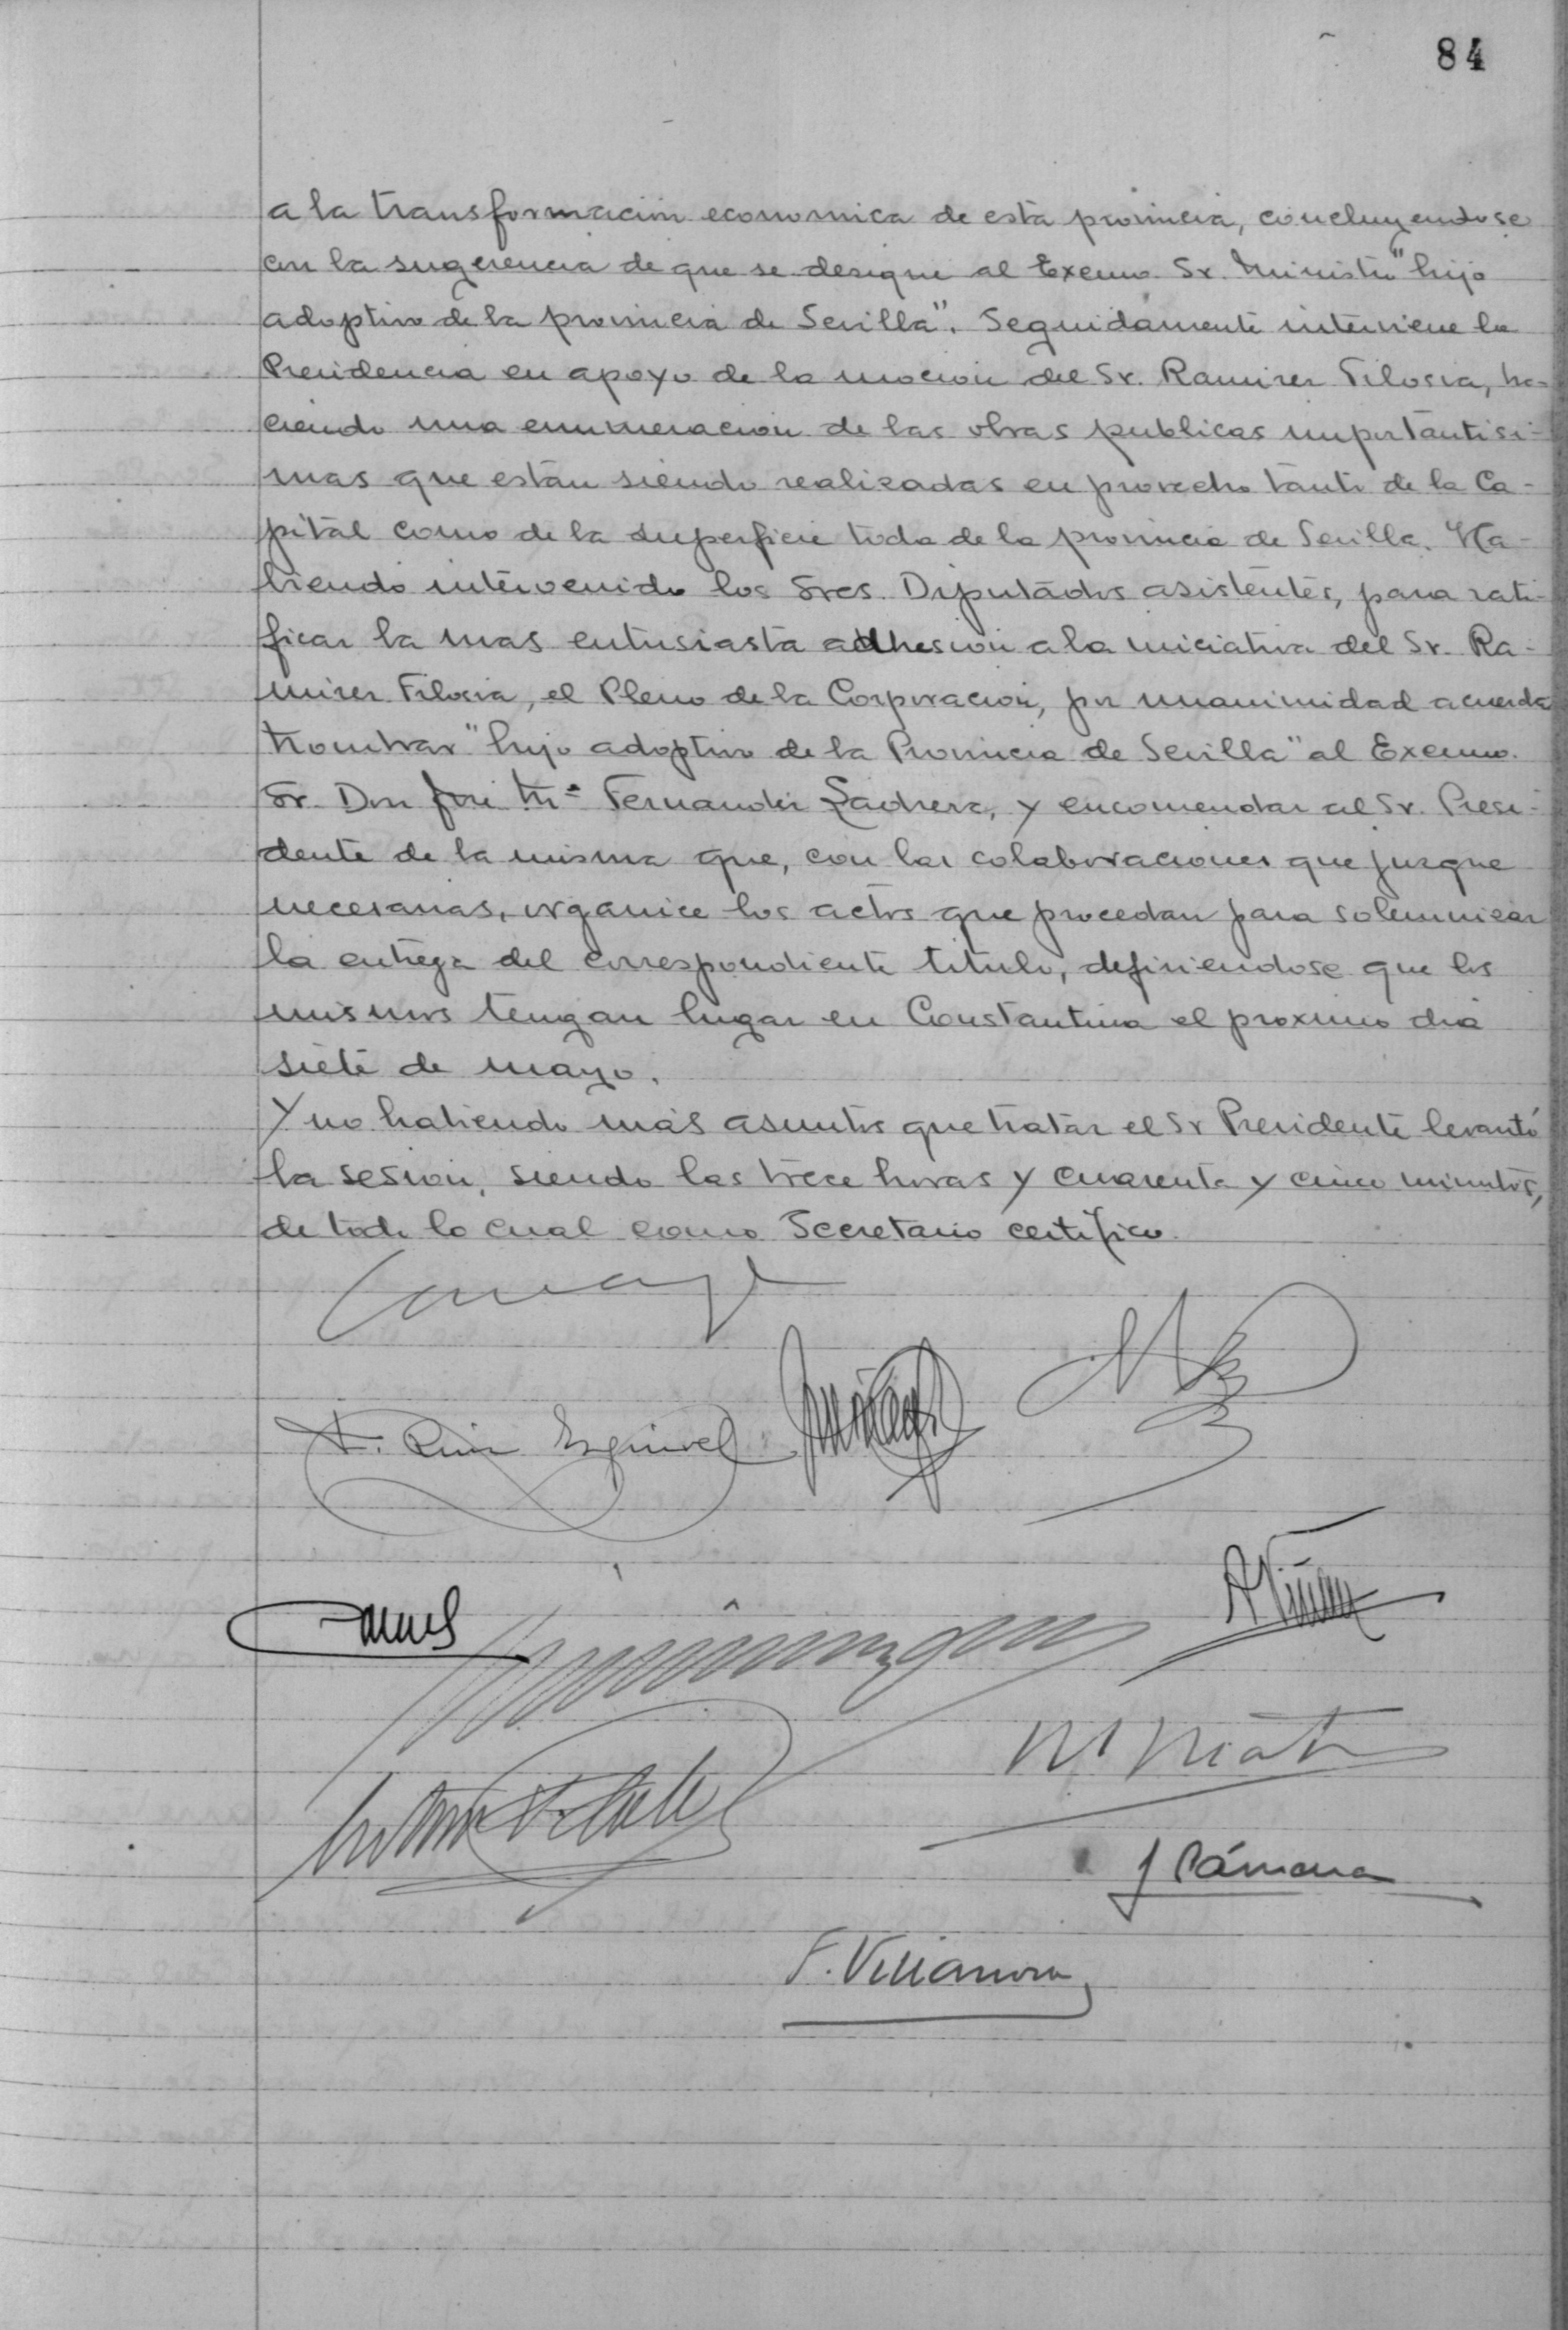 84
a la transformación economica de esta provincia, concluyendose
con la sugerencia de que se designe al Excmo. Sr. Ministro "hijo
adoptivo de la provincia de Sevilla". Seguidamente interviene la
Presidencia en apoyo de la moción del Sr. Ramirez Filosia, ha-
ciendo una enumeracion de las obras publicas importantisi-
mas que están siendo realizadas en provecho tanto de la Ca-
pital como de la superficie toda de la provincia de Sevilla. Ha-
biendo intervenido los Sres. Diputados asistentes, para rati-
ficar la mas entusiasta adhesion a la iniciativa del Sr. Ra-
mirez Filosia, el Pleno de la Corporacion, por unanimidad acuerda
Nombrar "hijo adoptivo de la Provincia de Sevilla" al Excmo.
Sr. Don José Mª Fernandez Ladreda, y encomendar al Sr. Presi-
dente de la misma que, con las colaboraciones que juzgue
necesarias, organice los actos que procedan para solemnizar
la entrega del correspondiente titulo, definiendose que los
mismos tengan lugar en Constantina el proximo dia
siete de mayo.
Y no habiendo más asuntos que tratar el Sr Presidente levantó
la sesion, siendo las trece horas y cuarenta y cinco minutos,
de todo lo cual como Secretario certifico.
Ruiz Esquivel
J Cámara
F. Villanova